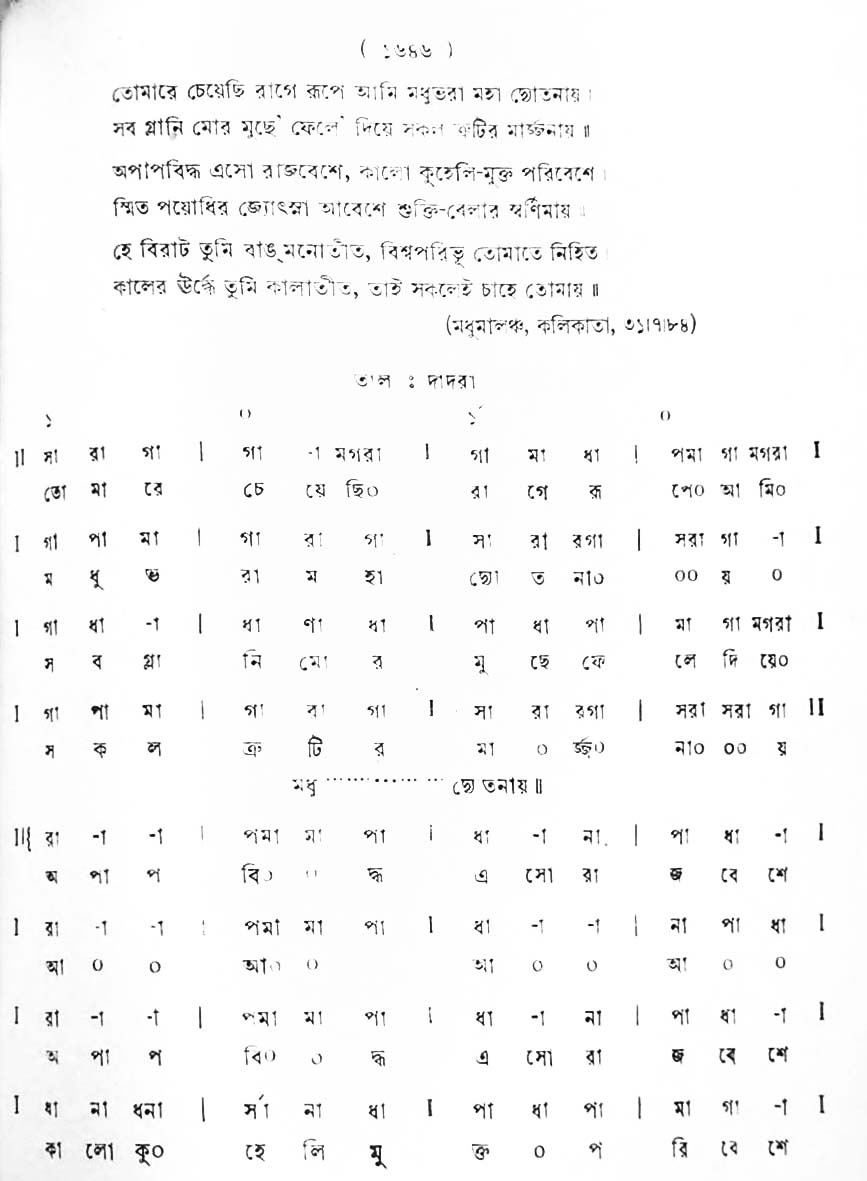 ( ১৬৪৬ )
তোমারে চেয়েছি রাগে রূপে আমি মধুভরা মহা দ্যোতনায়।
সব গ্লানি মোর মুছে' ফেলে' দিয়ে সকল ত্রুটির মার্জ্জনায়॥
অপাপবিদ্ধ এসো রাজবেশে, কালো কুহেলি-মুক্ত পরিবেশে।
স্মিত পয়োধির জ্যোৎস্না আবেশে শুক্তি-বেলার স্বর্ণিমায়॥
হে বিরাট তুমি বাঙ্‌মনোতীত, বিশ্বপরিভূ তোমাতে নিহিত।
কালের ঊর্দ্ধে তুমি কালাতীত, তাই সকলেই চাহে তোমায়॥
(মধুমালঞ্চ, কলিকাতা, ৩১।৭।৮৪)
তাল : দাদরা
১ ০ ১́ ০
II সা রা গা | গা -া মগরা I গা মা ধা | পমা গা মগরা I
তো মা রে চে য়ে ছি০ রা গে রূ পে০ আ মি০
I গা পা মা | গা রা গা I সা রা রগা | সরা গা -া I
ম ধু ভ রা ম হা দ্যো ত না০ ০০ য় ০
I গা ধা -া | ধা ণা ধা I পা ধা পা | মা গা মগরা I
স ব গ্লা নি মো র মু ছে ফে লে দি য়ে০
I গা পা মা | গা রা গা I সা রা রগা | সরা সরা গা II
স ক ল ত্রু টি র মা ০ র্জ্জ০ না০ ০০ য়
মধু ............... দ্যো তনায়॥
II{ রা -া -া | পমা মা পা I ধা -া না | পা ধা -া I
অ পা প বি০ ০ দ্ধ এ সো রা জ বে শে
I রা -া -া | পমা মা পা I ধা -া -া | না পা ধা I
আ ০ ০ আ০ ০ আ ০ ০ আ ০ ০
I রা -া -া | পমা মা পা I ধা -া না | পা ধা -া I
অ পা প বি০ ০ দ্ধ এ সো রা জ বে শে
I ধা না ধনা | র্সা না ধা I পা ধা পা | মা গা -া I
কা লো কু০ হে লি মু ক্ত ০ প রি বে শে